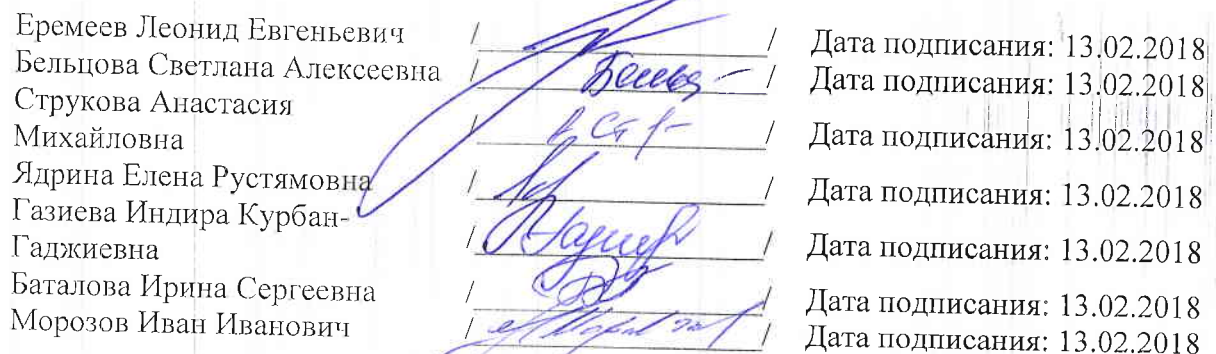 Еремеев Леонид Евгеньевич / / Дата подписания: 13.02.2018
Бельцова Светлана Алексеевна / / Дата подписания: 13.02.2018
Струкова Анастасия
Михайловна / / Дата подписания: 13.02.2018
Ядрина Елена Рустямовна / / Дата подписания: 13.02.2018
Газиева Индира Курбан-
Гаджиевна / / Дата подписания: 13.02.2018
Баталова Ирина Сергеевна / / Дата подписания: 13.02.2018
Морозов Иван Иванович / / Дата подписания: 13.02.2018